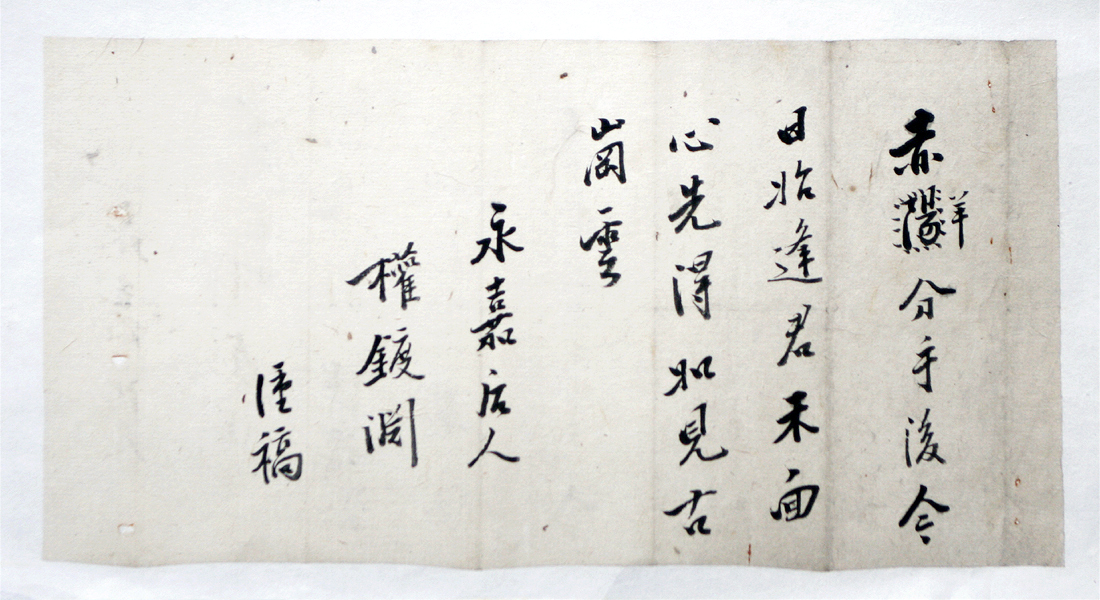 赤羊分手後今
日始逢君未面
心先得如見古
崗雲
永嘉后人
權鍍淵
謹稿